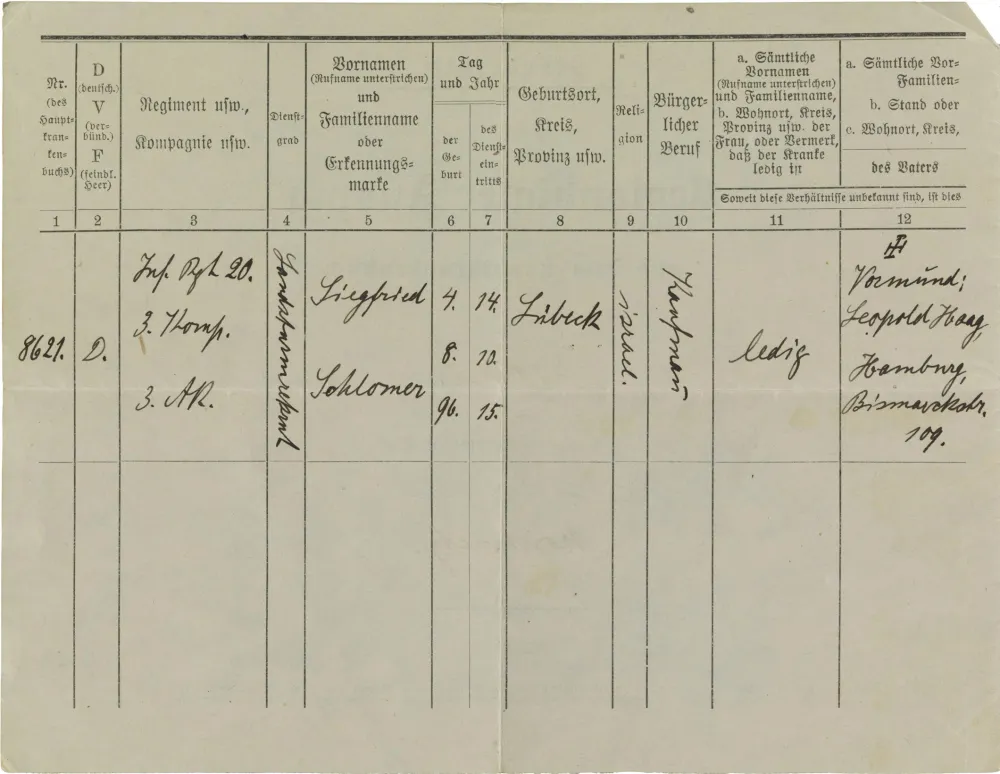 Nr.
(des
Haupt-
kran-
ken-
buchs)
D
(deutsch.)
V
(ver-
bünd.)
F
(feindl.
Heer)
Regiment usw.,
Kompagnie usw.
Dienst-
grad
Vornamen
(Rufname unterstrichen)
und
Familienname
oder
Erkennungs-
marke
Tag
und Jahr
der
Ge-
burt
des
Dienst-
ein-
tritts
Geburtsort,
Kreis,
Provinz usw.
Reli-
gion
Bürger-
licher
Beruf
a. Sämtliche
Vornamen
(Rufname unterstrichen)
und Familienname,
b. Wohnort, Kreis,
Provinz usw. der
Frau, oder Vermerk,
daß der Kranke
ledig ist
a. Sämtliche Vor-
Familien-
b. Stand oder
c. Wohnort, Kreis,
des Vaters
Soweit diese Verhältnisse unbekannt sind, ist dies
1 2 3 4 5 6 7 8 9 10 11 12
8621.
D.
Inf. Rgt 20.
3. Komp.
3. AK.
Landsturmrekrut
Siegfried
Schlomer
4.
8.
96.
14.
10.
15.
Lübeck
israel.
Kaufmañ
ledig
Vormund:
Leopold Haag,
Hamburg,
Bismarckstr.
109.